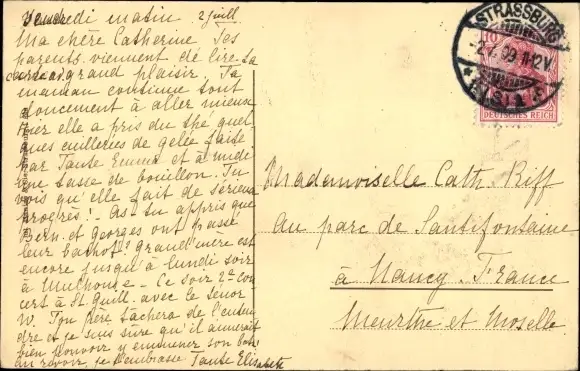 Vendredi matin 2 juill.
Ma chère Catherine Tes
parents viennent de lire ta
carte à grand plaisir. Ta
maman continue tout
doucement à aller mieux
Hier elle a pris du thé quel-
ques cuillerées de gelée faite
par Tante Emma et à midi
une tasse de bouillon. Tu
vois qu'elle fait de sérieux
progrès! As tu appris que
Bern. et Georges ont passé
leur bachot? Grand'mère est
encore jusqu'à lundi soir
à Mulhouse - Ce soir 2e con
cert à St. Guill. avec le tenor
W. Ton père tâchera de l'enten
dre et je suis sûre qu'il aimerait
bien pouvoir y emmener son
au revoir, je t'embrasse Tante Elisabeth
STRASSBURG
-2.7.09.11-12V.
* (ELS.) 1
10
DEUTSCHES REICH
Mademoiselle Cath. Riff
au parc de Santifontaine
à Nancy. France
Meurthe et Moselle